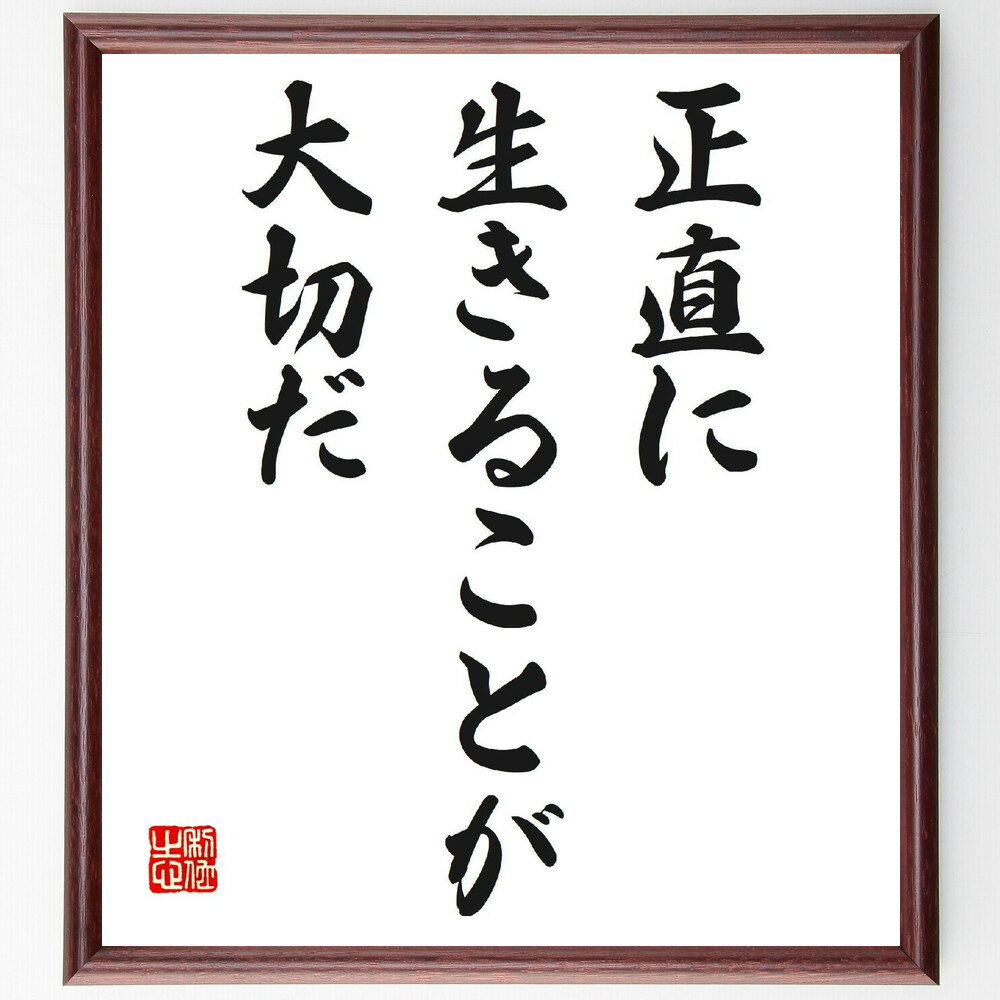 正直に
生きることが
大切だ